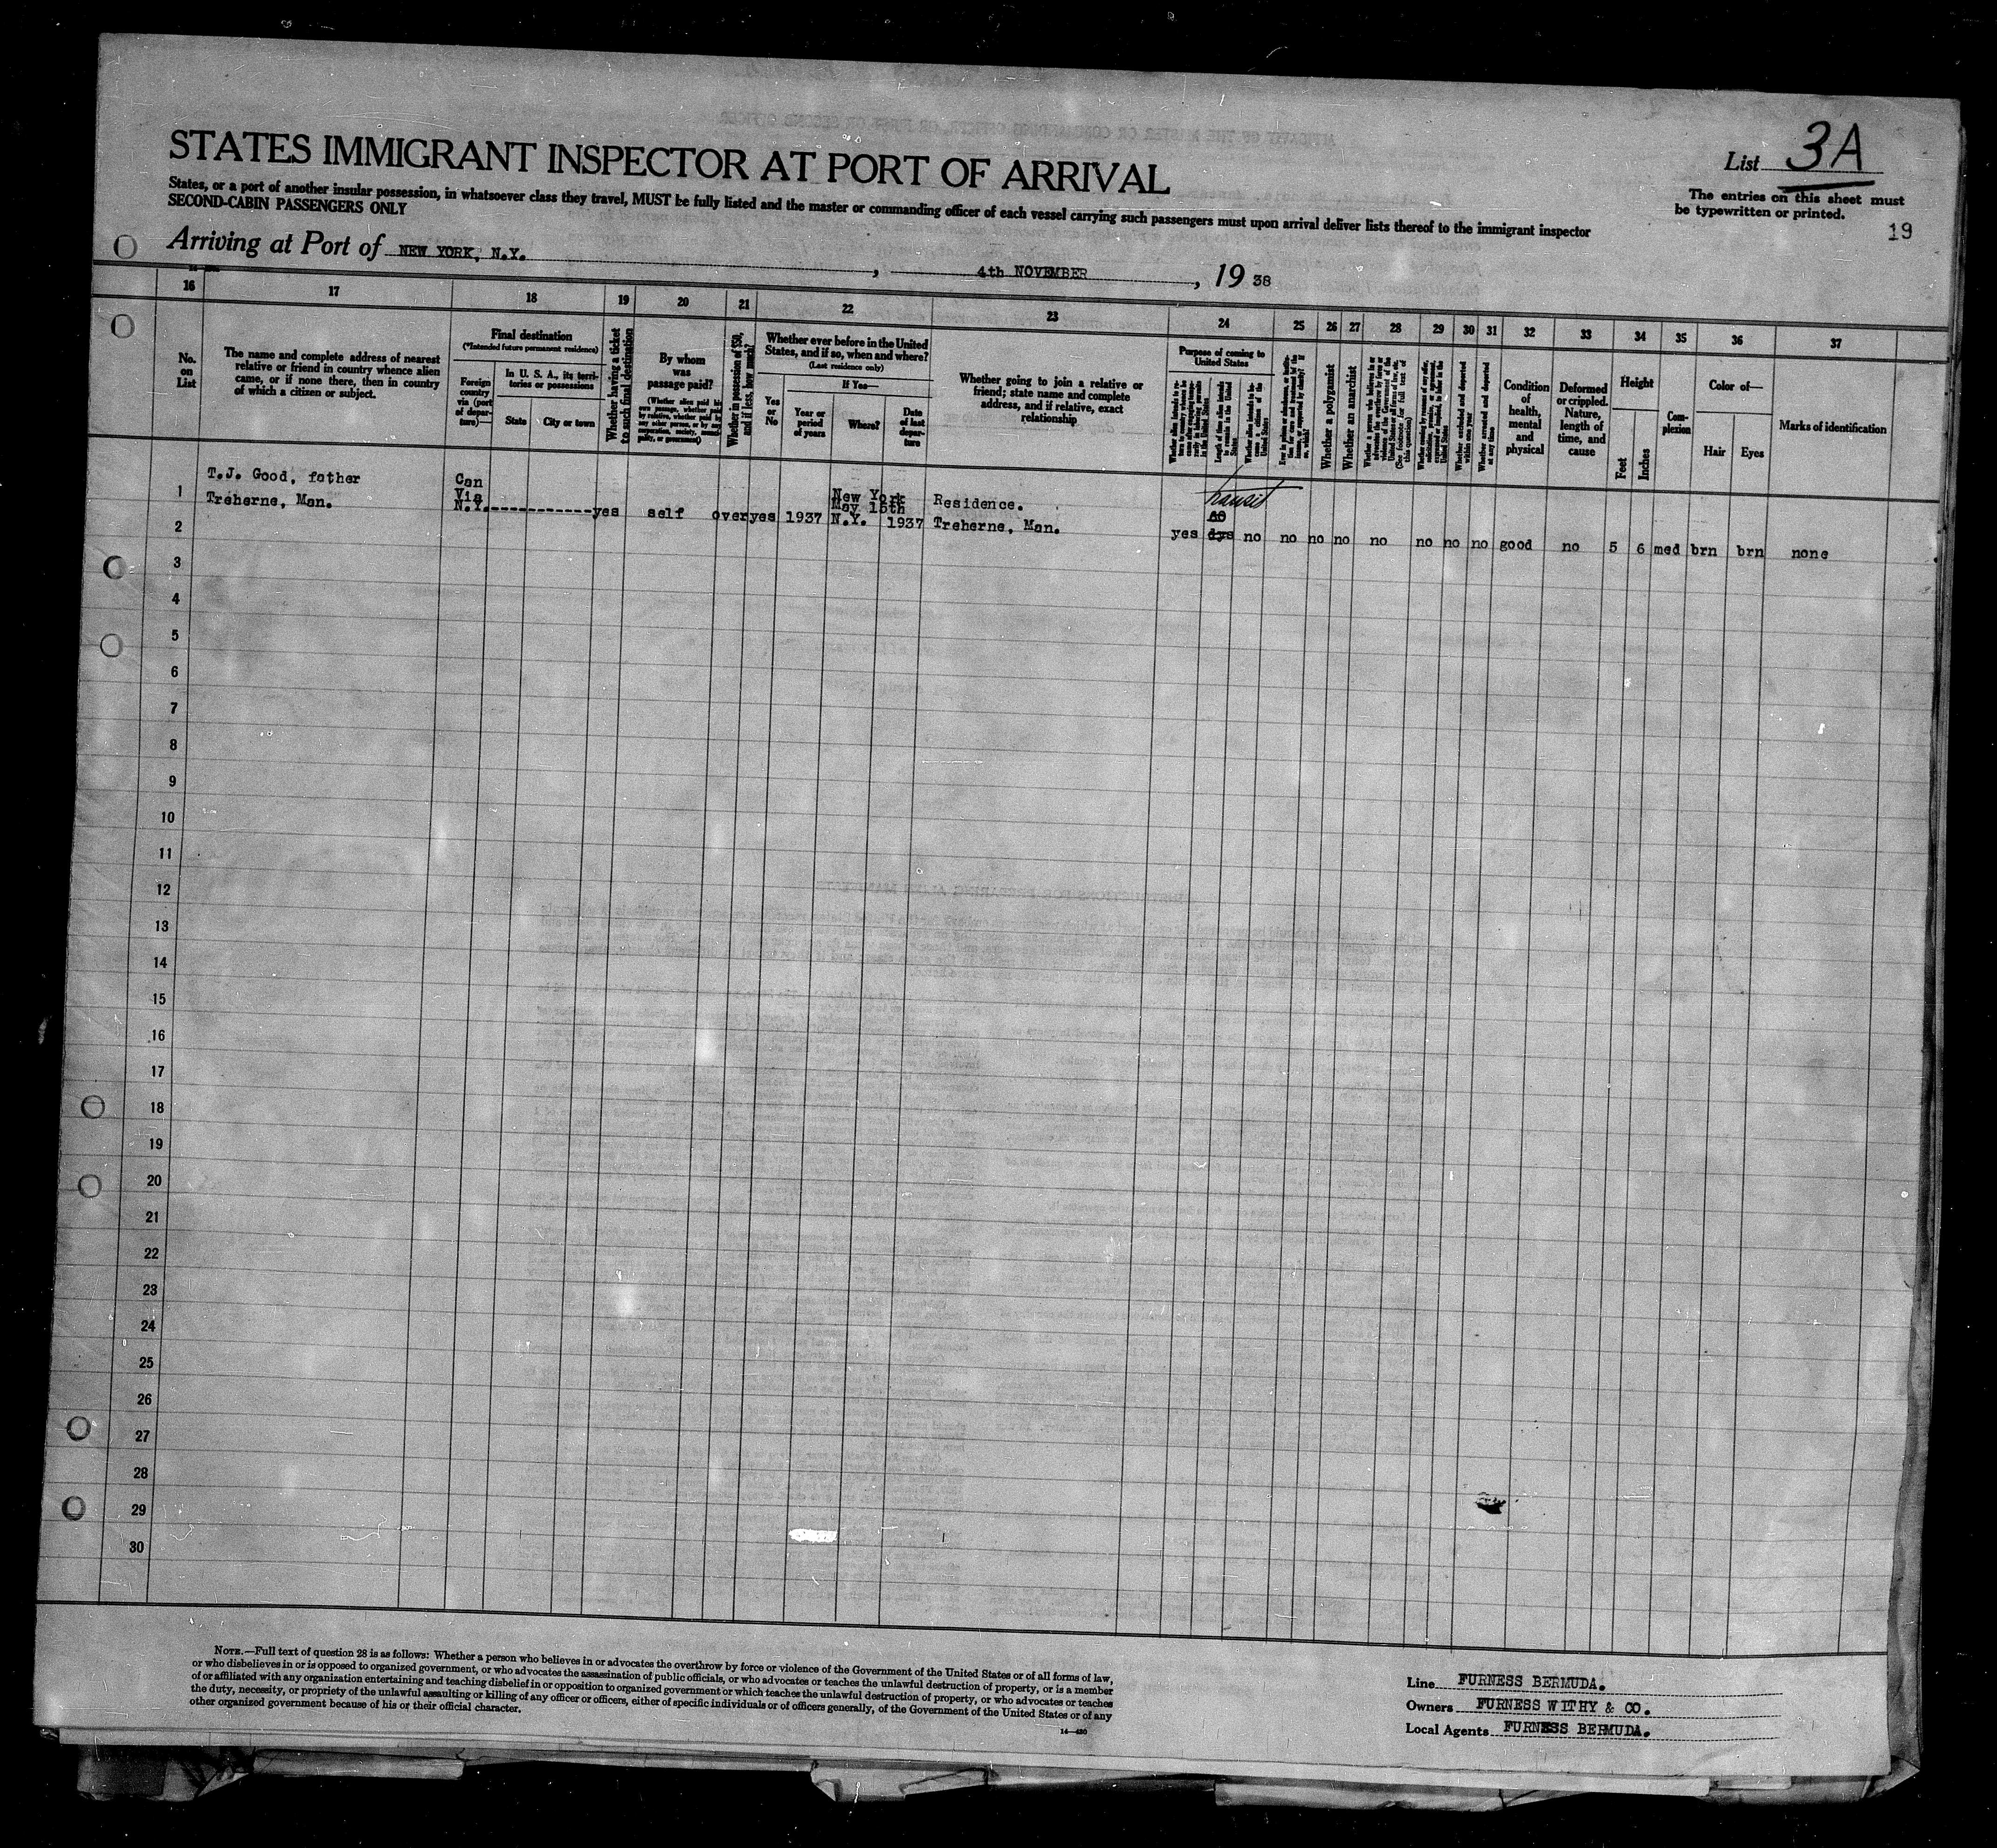 STATES IMMIGRANT INSPECTOR AT PORT OF ARRIVAL
States, or a port of another insular possession, in whatsoever class they travel, MUST be fully listed and the master or commanding officer of each vessel carrying such passengers must upon arrival deliver lists thereof to the immigrant inspector
SECOND-CABIN PASSENGERS ONLY
List 3A
The entries on this sheet must
be typewritten or printed.
19
Arriving at Port of NEW YORK, N.Y. , 4th NOVEMBER , 19 38
16 17 18 19 20 21 22 23 24 25 26 27 28 29 30 31 32 33 34 35 36 37
No.
on
List
The name and complete address of nearest
relative or friend in country whence alien
came, or if none there, then in country
of which a citizen or subject.
Final destination
(*Intended future permanent residence)
Foreign
country
via (port
of depar-
ture)—
In U. S. A., its terri-
tories or possessions
State
City or town
Whether having a ticket
to such final destination
By whom
was
passage paid?
(Whether alien paid his
own passage, whether paid
by relative, whether paid by
any other person, or by any
corporation, society, munici-
pality, or government)
Whether in possession of $50,
and if less, how much?
Whether ever before in the United
States, and if so, when and where?
(Last residence only)
Yes
or
No
If Yes—
Year or
period
of years
Where?
Date
of last
depar-
ture
Whether going to join a relative or
friend; state name and complete
address, and if relative, exact
relationship
Purpose of coming to
United States
Whether a polygamist
Whether an anarchist
Whether excluded and deported
within one year
Whether arrested and deported
at any time
Condition
of
health,
mental
and
physical
Deformed
or crippled.
Nature,
length of
time, and
cause
Height
Feet
Inches
Com-
plexion
Color of—
Hair
Eyes
Marks of identification
1
T.J. Good, father
Treherne, Man.
Can
Via
N.Y.------------yes self over yes 1937
New York
May 15th
N.Y. 1937
Residence.
Treherne, Man.
transit
yes dys no no no no no no no no good no 5 6 med brn brn none
2
3
4
5
6
7
8
9
10
11
12
13
14
15
16
17
18
19
20
21
22
23
24
25
26
27
28
29
30
NOTE.—Full text of question 28 is as follows: Whether a person who believes in or advocates the overthrow by force or violence of the Government of the United States or of all forms of law,
or who disbelieves in or is opposed to organized government, or who advocates the assassination of public officials, or who advocates or teaches the unlawful destruction of property, or is a member
of or affiliated with any organization entertaining and teaching disbelief in or opposition to organized government or which teaches the unlawful destruction of property, or who advocates or teaches
the duty, necessity, or propriety of the unlawful assaulting or killing of any officer or officers, either of specific individuals or of officers generally, of the Government of the United States or of any
other organized government because of his or their official character.
14—430
Line FURNESS BERMUDA.
Owners FURNESS WITHY & CO.
Local Agents FURNESS BERMUDA.